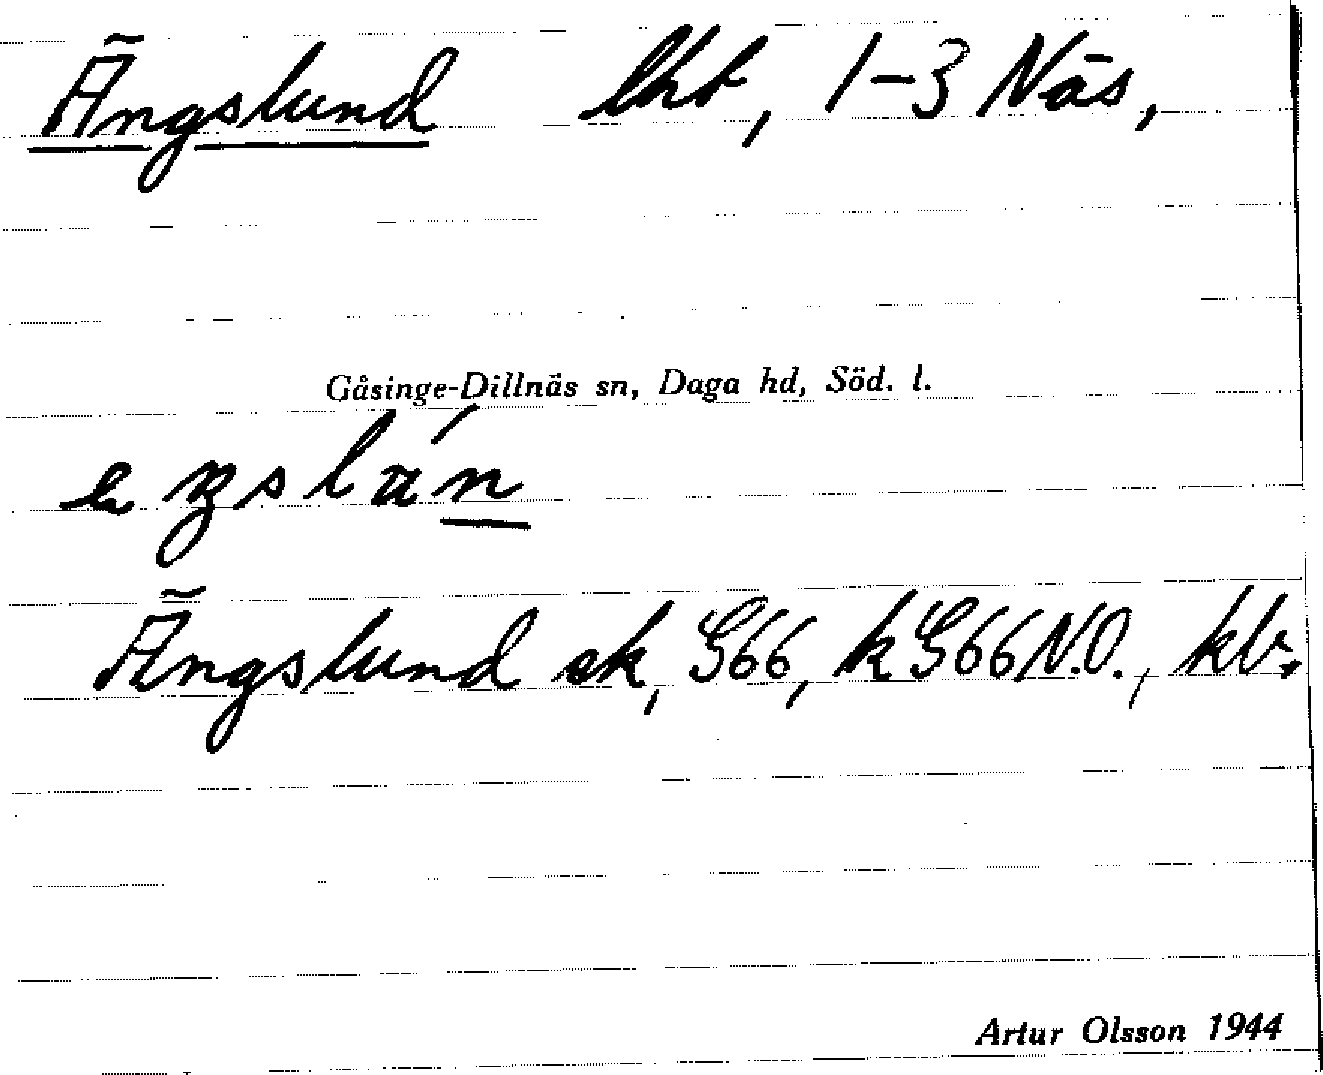 Ängslund lht, 1-3 Näs,
Gåsinge-Dillnäs sn, Daga hd, Söd. l.
Ängslund sk, G66, k G66 N.O., kbr
Artur Olsson 1944